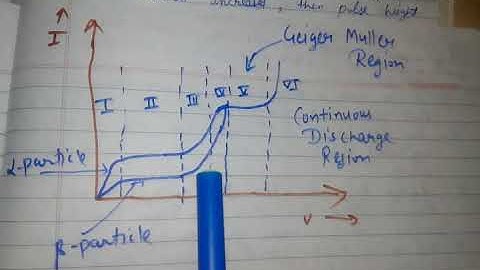 increases, then pulse height
I
Geiger Muller
Region
I
II
III
IV
V
VI
Continuous
Discharge
Region
α-particle
β-particle
V